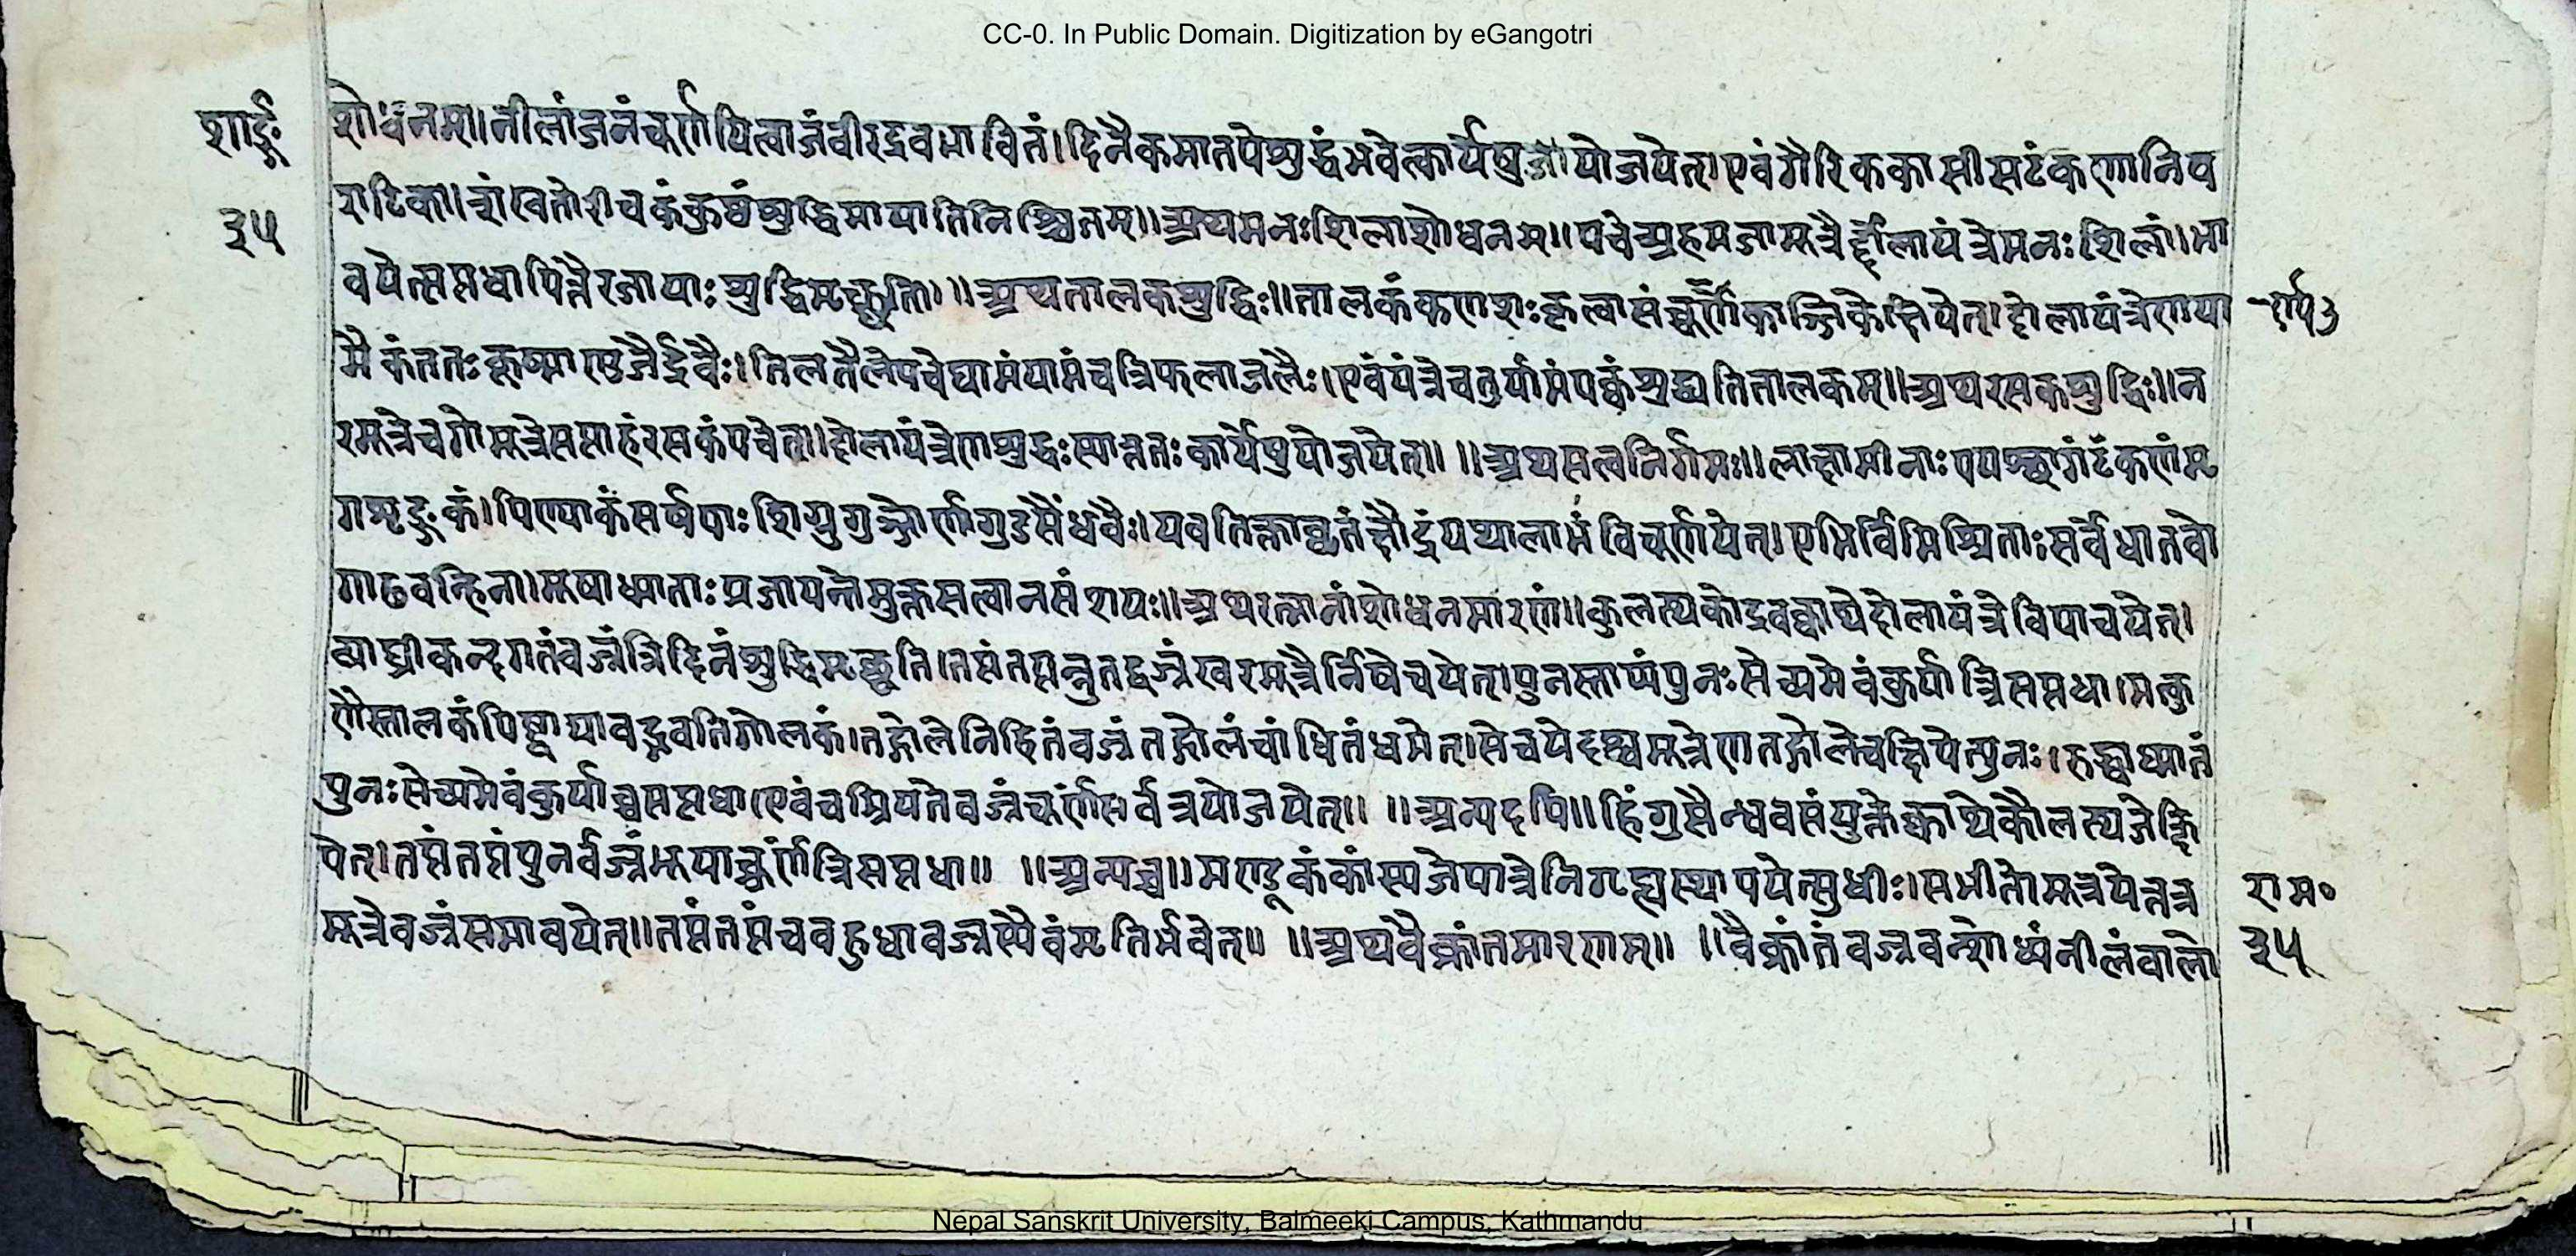 CC-0. In Public Domain. Digitization by eGangotri
शार्ङ्ग
३५
शोधनम्॥नीलांजनंचूर्णयित्वाजंवीरद्रवभावितं।दिनैकमातपेशुद्धंभवेत्कार्येषुयोजयेत्।एवंगैरिककासीसटंकणानिव
राटिका।शंखतोरीचकंकुष्ठंशुद्धिमायातिनिश्चितम्॥अथमनःशिलाशोधनम्॥पचेत्त्र्यहमजामूत्रैर्दोलायंत्रेमनःशिलां।भा
वयेत्सप्तधापित्तैरजायाःशुद्धिमृच्छति॥॥अथतालकशुद्धिः॥तालकंकणशःकृत्वासंचूर्णंकाञ्जिकेक्षिपेत्।दोलायंत्रेणया
मैकंततःकूष्माण्डजैर्द्रवैः।तिलतैलेपचेद्यामंयामंचत्रिफलाजलैः।एवंयंत्रेचतुर्यामंपक्वंशुद्ध्यतितालकम्॥अथरसकशुद्धिः॥न
रमूत्रेचगोमूत्रेसप्ताहंरसकंपचेत्॥दोलायंत्रेणशुद्धःस्यात्ततःकार्येषुयोजयेत्॥ ॥अथसत्वनिर्गमः॥लाक्षामीनाःपयश्छागंटंकणंमृ
गशृङ्गकं।पिण्याकंसर्षपाःशिग्रुगुञ्जोर्णागुडसैंधवैः।यवतिक्ताघृतंक्षौद्रंयथालाभंविचूर्णयेत्।एभिर्विमिश्रिताःसर्वेधातवो
गाढवह्निना।मूषाध्माताःप्रजायन्तेमुक्तसत्वानसंशयः॥अथरत्नानांशोधनमारणं॥कुलत्थकोद्रवक्वाथेदोलायंत्रेविपाचयेत्।
व्याघ्रीकन्दगतंवज्रंत्रिदिनंशुद्धिमृच्छति।तप्तंतप्तन्तुतद्वज्रंखरमूत्रैर्निषेचयेत्।पुनस्ताप्यंपुनःसेच्यमेवंकुर्यात्त्रिसप्तधा।मत्कु
णैस्तालकंपिष्ट्वायावद्भवतिगोलकं।तद्गोलेनिहितंवज्रंतद्गोलंचांधितंधमेत्।सेचयेदश्वमूत्रेणतद्गोलेचक्षिपेत्पुनः।रुद्ध्वाध्मातं
पुनःसेच्यमेवंकुर्याच्चसप्तधा।एवंचम्रियतेवज्रंचूर्णंसर्वत्रयोजयेत्॥ ॥अन्यदपि॥हिंगुसैन्धवसंयुक्तेक्वाथेकौलत्थजेक्षि
पेत्।तप्तंतप्तंपुनर्वज्रंभूयाच्चूर्णंत्रिसप्तधा॥ ॥अन्यच्च॥मण्डूकंकांस्यजेपात्रेनिगृह्यस्थापयेत्सुधीः।सभीतोमूत्रयेत्तत्र
मूत्रेवज्रंसमावपेत्॥तप्तंतप्तंचबहुधावज्रस्यैवंमृतिर्भवेत्॥ ॥अथवैक्रांतमारणम्॥ ॥वैक्रांतंवज्रवच्छोध्यंनीलंवालो
राम०
३५
Nepal Sanskrit University, Balmeeki Campus, Kathmandu